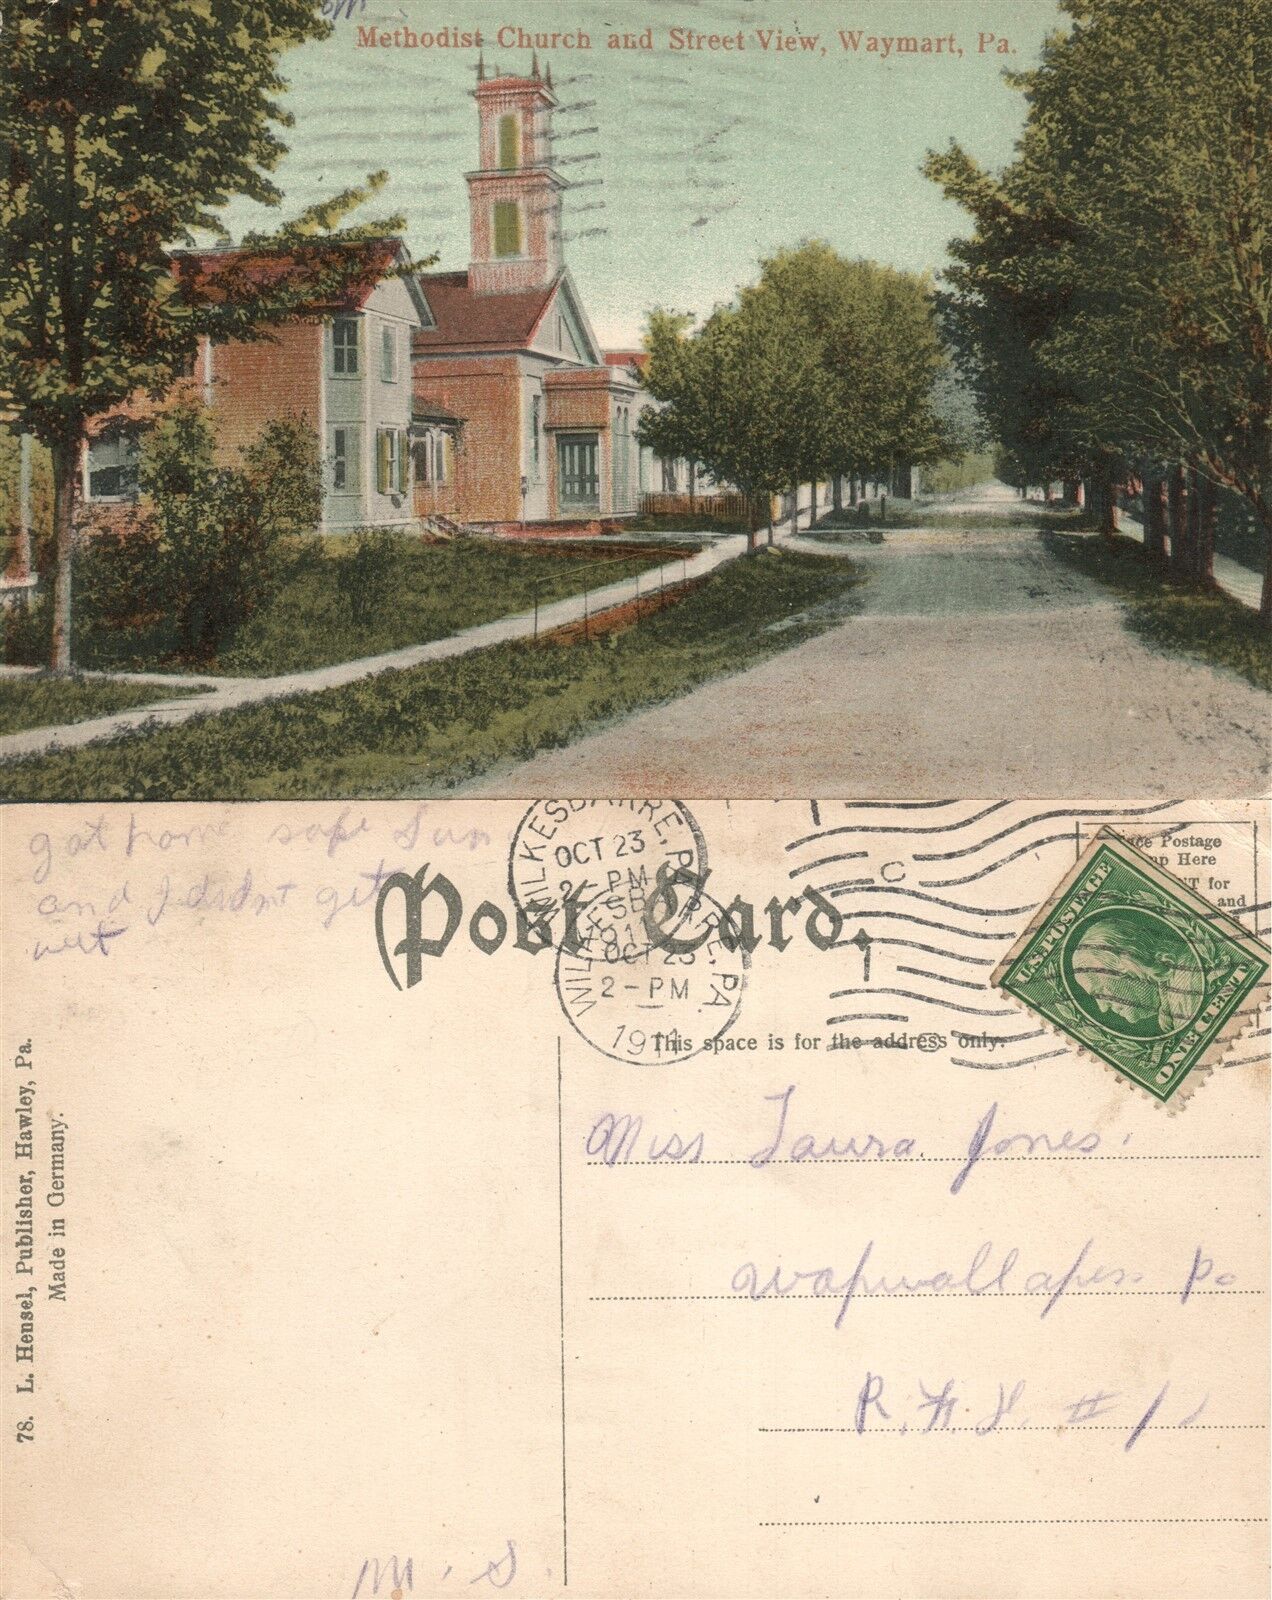 Methodist Church and Street View, Waymart, Pa.
got home safe Sun
and I didn't get
wet
Post Card.
WILKESBARRE, PA.
OCT 23
2 - PM
1911
WILKESBARRE, PA.
OCT 23
2 - PM
1911
Place Postage
Stamp Here
for
and
U.S. POSTAGE
ONE CENT
This space is for the address only.
Miss Laura Jones.
Wapwallapen Pa
R. F. D. # 1
78. L. Hensel, Publisher, Hawley, Pa.
Made in Germany.
M. S.